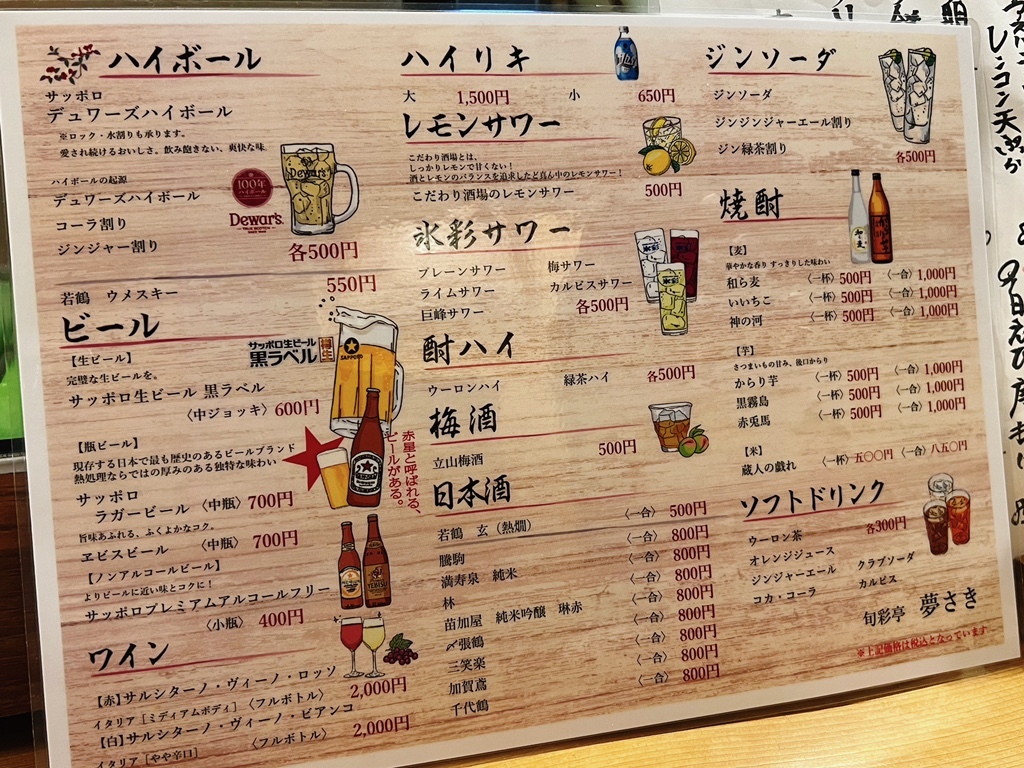 ハイボール
サッポロ
デュワーズハイボール
※ロック・水割りも承ります。
愛され続けるおいしさ。飲み飽きない、爽快な味
ハイボールの起源
デュワーズハイボール
コーラ割り
ジンジャー割り
100年
ハイボール
Dewar's
Dewar's.
各500円
550円
若鶴 ウメスキー
ビール
【生ビール】
完璧な生ビールを。
サッポロ生ビール
黒ラベル
樽生
サッポロ生ビール 黒ラベル
〈中ジョッキ〉600円
【瓶ビール】
現存する日本で最も歴史のあるビールブランド
熱処理ならではの厚みのある独特な味わい
サッポロ
ラガービール 〈中瓶〉 700円
旨味あふれる、ふくよかなコク。
ヱビスビール 〈中瓶〉 700円
赤星と呼ばれる、
ビールがある。
【ノンアルコールビール】
よりビールに近い味とコクに!
サッポロプレミアムアルコールフリー
〈小瓶〉 400円
ワイン
【赤】サルシターノ・ヴィーノ・ロッソ
イタリア[ミディアムボディ] 〈フルボトル〉 2,000円
【白】サルシターノ・ヴィーノ・ビアンコ
イタリア[やや辛口] 〈フルボトル〉 2,000円
ハイリキ
大 1,500円 小 650円
レモンサワー
こだわり酒場とは、
しっかりレモンで甘くない!
酒とレモンのバランスを追求したど真ん中のレモンサワー!
こだわり酒場のレモンサワー 500円
氷彩サワー
プレーンサワー 梅サワー
ライムサワー カルピスサワー
巨峰サワー 各500円
酎ハイ
ウーロンハイ 緑茶ハイ 各500円
梅酒
立山梅酒 500円
日本酒
若鶴 玄(熱燗) 〈一合〉 500円
騰駒 〈一合〉 800円
満寿泉 純米 〈一合〉 800円
林 〈一合〉 800円
苗加屋 純米吟醸 琳赤 〈一合〉 800円
〆張鶴 〈一合〉 800円
三笑楽 〈一合〉 800円
加賀鳶 〈一合〉 800円
千代鶴 〈一合〉 800円
ジンソーダ
ジンソーダ
ジンジンジャーエール割り
ジン緑茶割り
各500円
焼酎
【麦】
華やかな香り すっきりした味わい
和ら麦 〈一杯〉500円 〈一合〉1,000円
いいちこ 〈一杯〉500円 〈一合〉1,000円
神の河 〈一杯〉500円 〈一合〉1,000円
【芋】
さつまいもの甘み、後口からり
からり芋 〈一杯〉500円 〈一合〉1,000円
黒霧島 〈一杯〉500円 〈一合〉1,000円
赤兎馬 〈一杯〉500円 〈一合〉1,000円
【米】
蔵人の戯れ 〈一杯〉五〇〇円 〈一合〉八五〇円
ソフトドリンク
各300円
ウーロン茶
オレンジジュース
ジンジャーエール クラブソーダ
コカ・コーラ カルピス
旬彩亭 夢さき
※上記価格は税込となっています
レンコン天ぷら